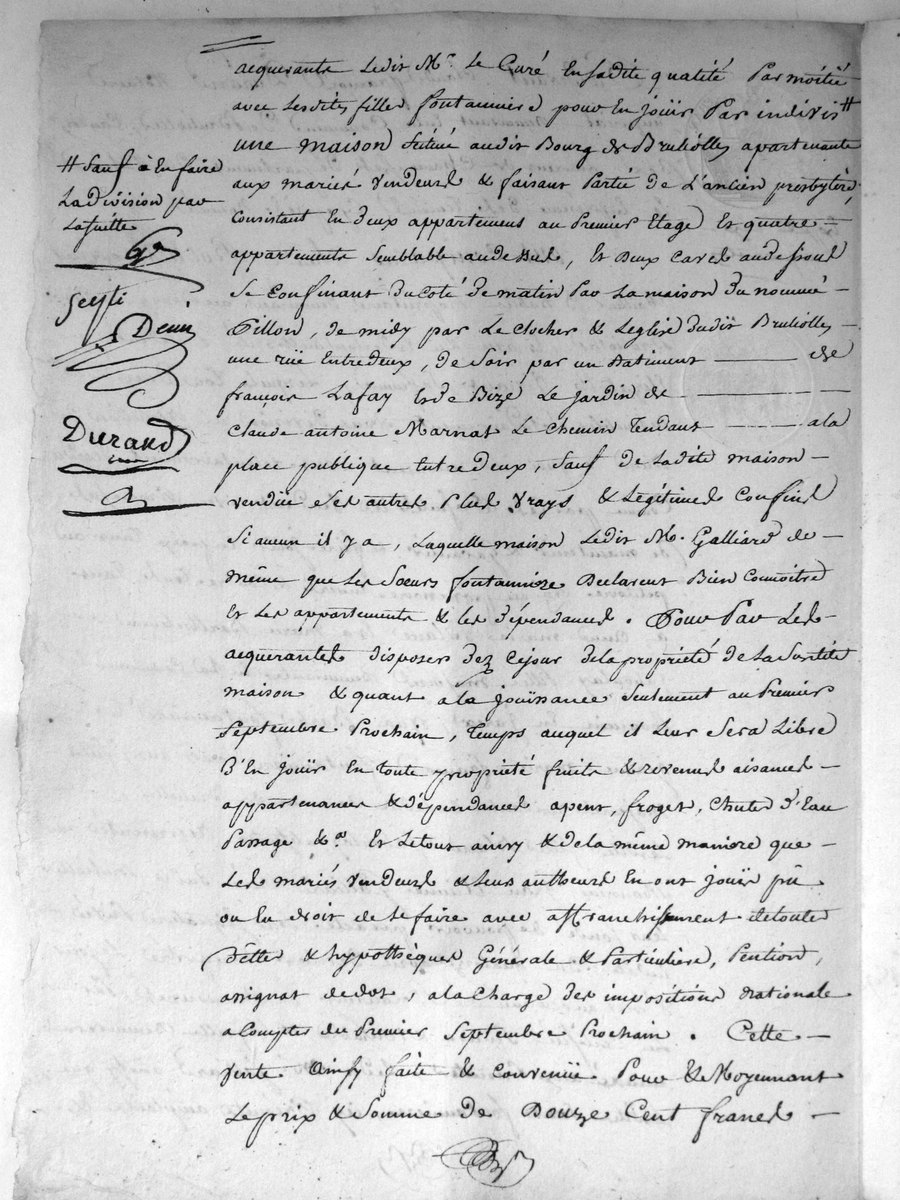 acquerants Ledit Mr. Le Curé En sadite qualité Par moitié
avec Lesdites filles fontanniere pour En joüir Par indivis #
une maison Scitué audit Bourg de Brulïolles apartenante
aux mariés Vendeurs & faisant Partie de L'ancien presbytère,
Consistant En deux appartement au Premier Etage Et quatre —
appartements Semblable audessus, Et Deux Caves audessous
Se Confinant du Coté de matin Par La maison du nommé —
Pillon, de midy par Le clocher & Leglise dudit Brulïolles —
une rüe Entredeux, de Soir par un Batiment — de
françois Lafay Et de Bize Le jardin de —
Claude antoine Marnas Le Chemin Tendant — a la
place publique Entredeux, Sauf de Ladite maison —
Vendüe Ses autres Plus Vrays & Légitimes Confins
Si aucun il y a, Laquelle maison Ledit Mr. Galliard de —
même que Les Sœurs fontanniere Declarent Bien Connoitre
Et Les appartements & les dépendances. Pour Par Les —
acquerantes disposer dez Cejour de la propriété de La Susdite
maison & quant a la joüissance Seulement au Premier
Septembre Prochain, Temps auquel il Leur Sera Libre
D'En Joüir En toute propriété fruits & revenus aisances —
appartenances & dépendances apent, froget, Chutes d'Eau
Passage &a. Et Le tout ainsy & de la même maniere que —
Les mariés Vendeurs & Leurs autheurs En ont joüir pû
ou Eu droit de Le faire avec affranchissement de toutes
dettes & hypothèques Générale & Particuliere, Pention,
assignat de dot, a la Charge des impositions Nationale
a Comptes du Premier Septembre Prochain. Cette —
Vente Ainsy faite & Convenüe Pour & Moyennant
Le prix & Somme de Douze Cent francs —
# Sauf à En faire
La division par
La suitte
Denis
Durand